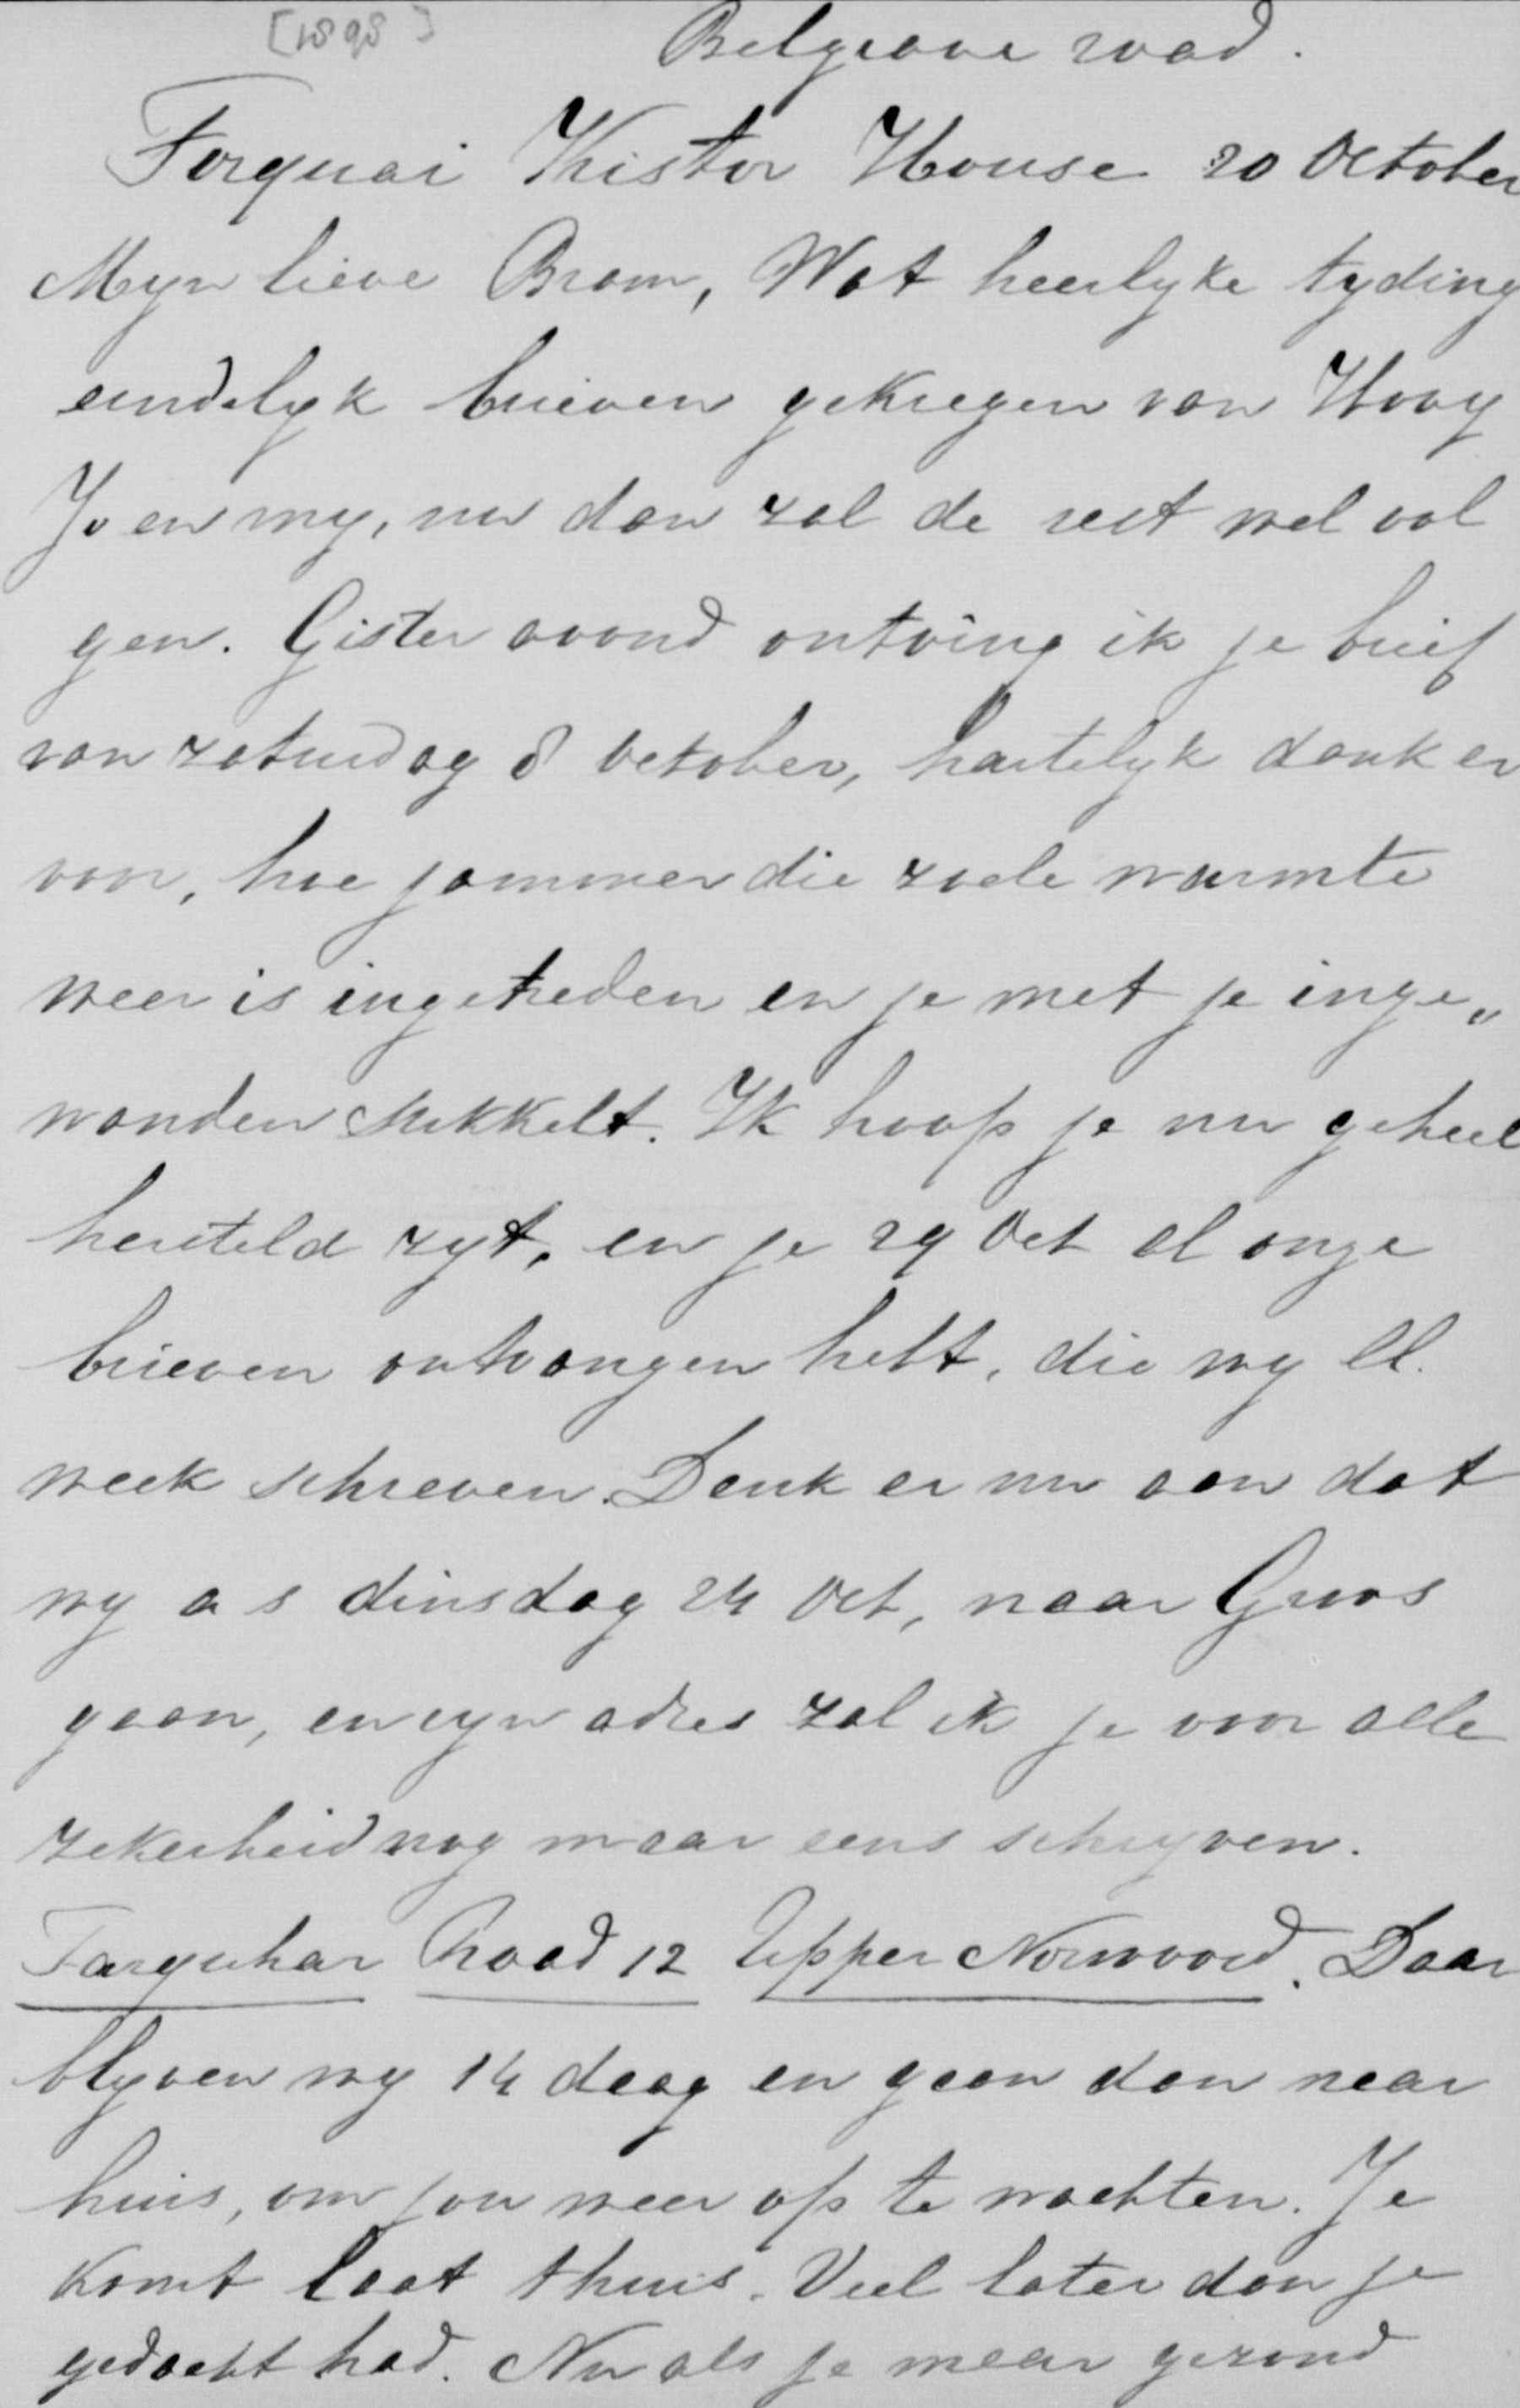 [1898]
Belgrave road.
Torquai Kistor House 20 October
Myn lieve Bram, Wat heerlyke tyding
eindelyk brieven gekregen van Hoog
Jo en my, nu dan zal de rest wel vol
gen. Gister avond ontving ik je brief
van zaturdag 8 October, hartelyk dank er
voor, hoe jammer die zoele warmte
weer is ingetreden en je met je inge„
wanden sukkelt. Ik hoop je nu geheel
hersteld zyt, en je 29 Oct al onze
brieven ontvangen hebt, die wy ll.
week schreven. Denk er nu aan dat
wy a s dinsdag 24 Oct, naar Guus
gaan, en zyn adres zal ik je voor alle
zekerheid nog maar eens schryven.
Farquhar Road 12 Upper Norwood. Daar
blyven wy 14 daag en gaan dan naar
huis, om jou weer op te wachten. Je
komt laat thuis. Veel later dan je
gedacht had. Nu als je maar gezond